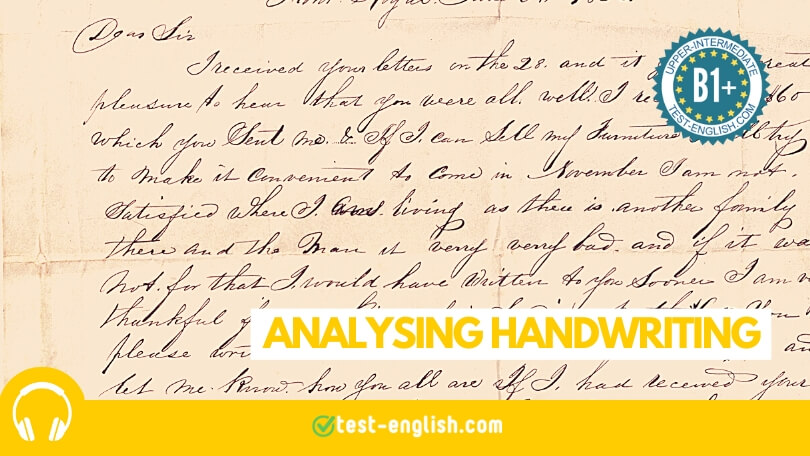 Dear Sir
I received your letters on the 28. and it
pleasure to hear that you were all. well. I
which you Sent me. & If I. can Sell my Furniture
to make it convenient to come in November I am not.
Satisfied where I. living as there is another family
there and the Man it verry verry bad. and if it
not. for that I. would have written to you Sooner I am
thankful
please
let me. know. how you all are If I. had received your
UPPER-INTERMEDIATE
B1+
TEST-ENGLISH.COM
ANALYSING HANDWRITING
test-english.com